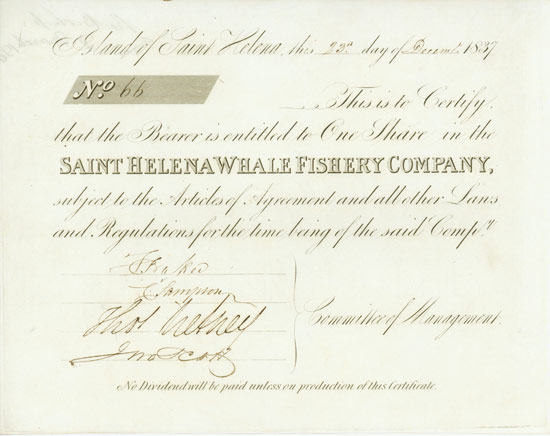 Island of Saint Helena, this 23d day of Decemr. 1837
No. 66
This is to Certify,
that the Bearer is entitled to One Share in the
SAINT HELENA WHALE FISHERY COMPANY,
subject to the Articles of Agreement and all other Laws
and Regulations for the time being of the said Compy.
Sampson
Thos
Jno Scott
Committee of Management.
No Dividend will be paid unless on production of this Certificate.